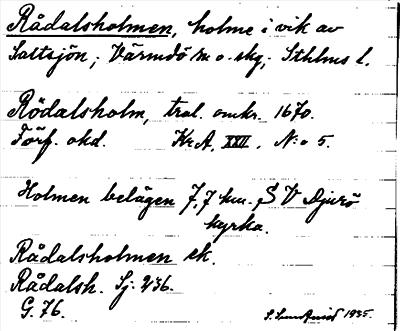 Rådalsholmen, holme i vik av
Saltsjön, Värmdö sn o. skg, Sthlms l.
Rödalsholm, tral. omkr. 1670.
Förf. okd. Kr.A. XXII. N:o 5.
Holmen belägen 7,7 km. SV Djurö
kyrka.
Rådalsholmen ek.
Rådalsh. Sj. 236.
G. 76.
1935.